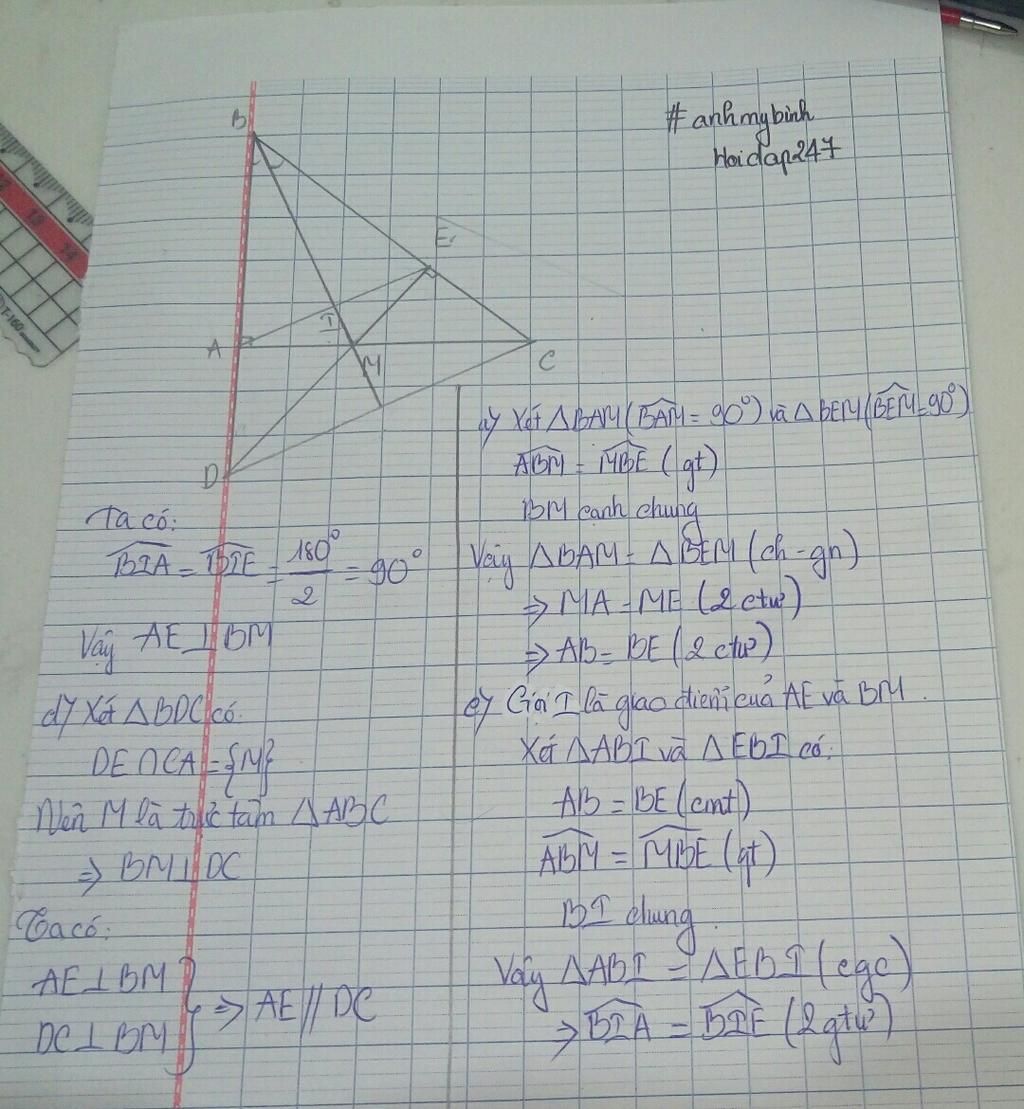 #anhmybinh
Hoidap247
B
E
I
A
M
C
D
a) Xét △BAM (BAM̂ = 90°) và △BEM (BEM̂ = 90°)
ABM̂ = MBÊ (gt)
BM cạnh chung
Vậy △BAM = △BEM (ch - gn)
⇒ MA = ME (2 ctư)
⇒ AB = BE (2 ctư)
c) Gọi I là giao điểm của AE và BM.
Xét △ABI và △EBI có:
AB = BE (cmt)
ABM̂ = MBÊ (gt)
BI chung
Vậy △ABI = △EBI (cgc)
⇒ BIÂ = BIÊ (2 gtư)
Ta có:
BIÂ = BIÊ = 180°/2 = 90°
Vậy AE ⊥ BM
d) Xét △BDC có:
DE ∩ CA = {M}
Nên M là trực tâm △ABC
⇒ BM ⊥ DC
Ta có:
AE ⊥ BM
DC ⊥ BM
} ⇒ AE // DC